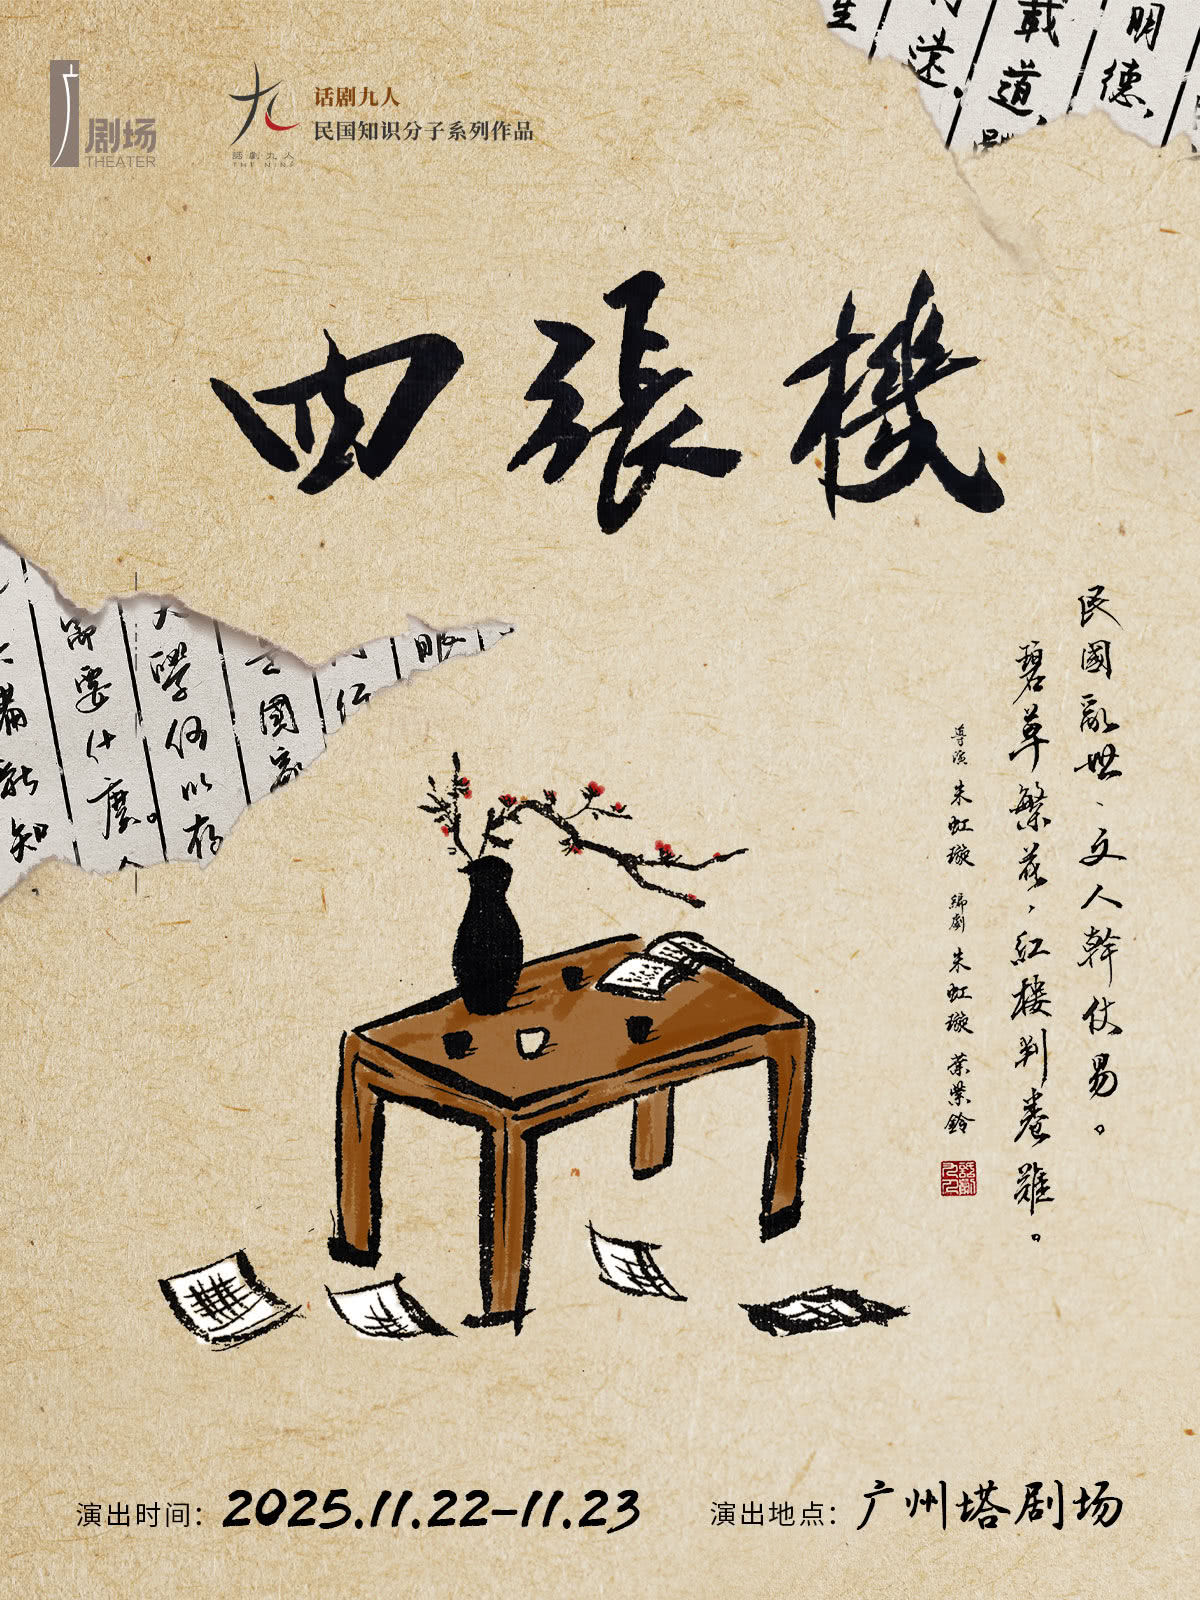 剧场
THEATER
話劇九人
THE NINE
话剧九人
民国知识分子系列作品
明德、
載道、
遠。
四張機
民國亂世、文人幹仗易。
碧草繁花,紅樓判卷難。
導演 朱虹璇 編劇 朱虹璇 葉紫鈴
眼
國
大學何以存
需要什麼。
新知
演出时间：2025.11.22-11.23
演出地点：广州塔剧场